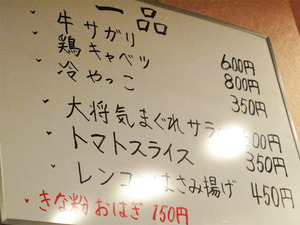 一品
牛サガリ 600円
鶏キャベツ 800円
冷やっこ 350円
大将気まぐれサラ 00円
トマトスライス 350円
レンコ はさみ揚げ 450円
きな粉おはぎ 150円